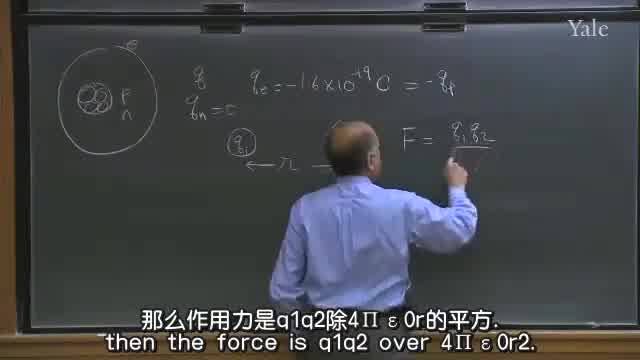 Yale
e
P
n
q qe = -1.6 × 10^-19 C = -qp
qn = 0
q1
← r
F = q1 q2
那么作用力是q1q2除4Πε0r的平方.
then the force is q1q2 over 4Πε0r2.